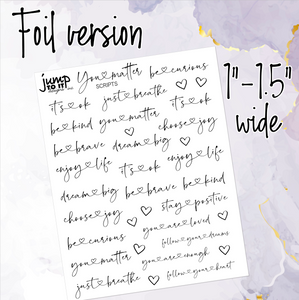 Foil version
JUMP
TO IT!
You♡matter be♡curious
SCRIPTS
it's♡ok just♡breathe it's♡ok
be♡kind you♡matter
be♡brave dream♡big choose♡joy
enjoy♡life it's♡ok enjoy♡life
dream♡big be♡brave be♡kind
choose♡joy ♡ stay♡positive
be♡curious you♡are♡loved ♡
you♡matter follow♡your♡dreams
♡ you♡are♡enough ♡
just♡breathe follow♡your♡heart
1"-1.5"
wide